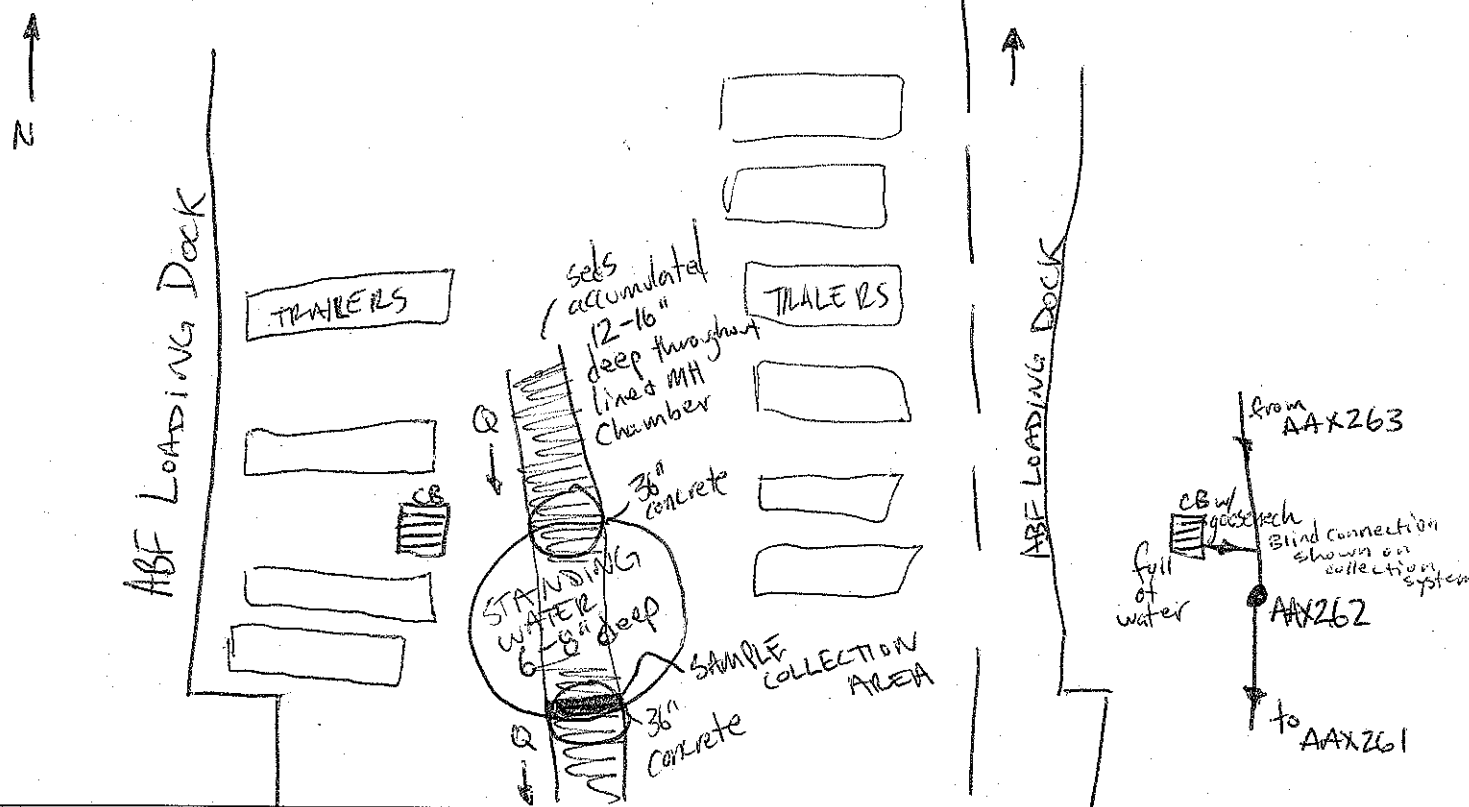 N
ABF LOADING DOCK
TRAILERS
CB
Q
seds
accumulated
12-16"
deep throughout
lined MH
Chamber
36"
concrete
STANDING
WATER
6-8" deep
SAMPLE
COLLECTION
AREA
36"
concrete
Q
TRALERS
ABF LOADING DOCK
from
AAX263
CB w/
gooseneck
Blind connection
shown on
collection
system
full
of
water
AAX262
to
AAX261